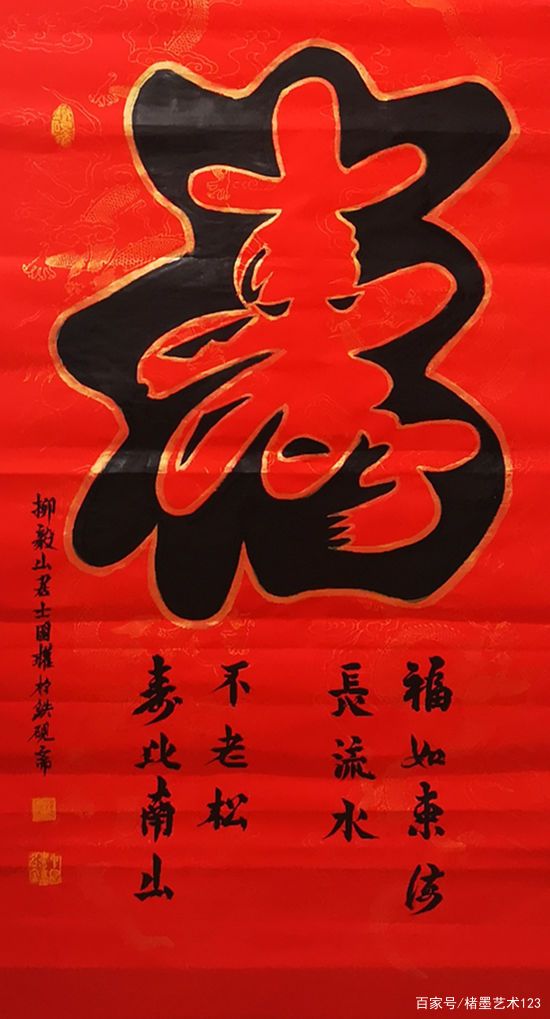 寿
福如東海
長流水
不老松
寿比南山
柳毅山居士國權於鉄硯斎
百家号/楮墨艺术123